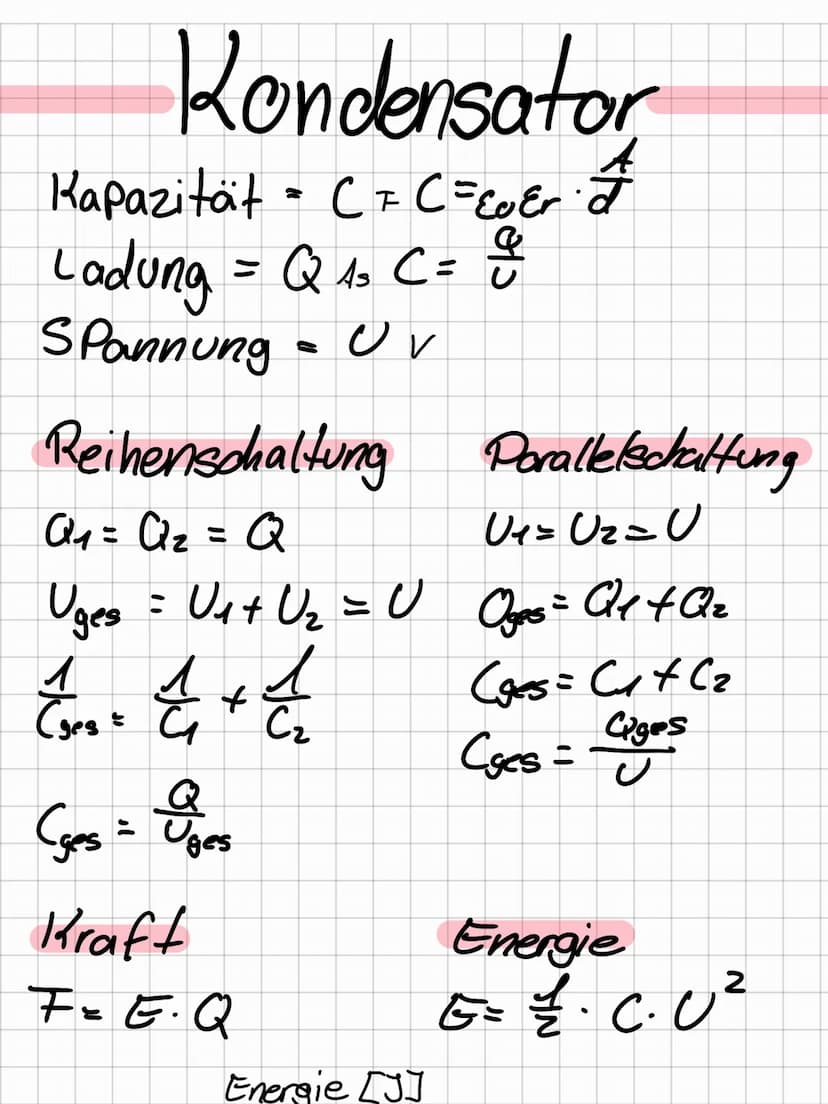 Kondensator
Kapazität = C F C = ε0 εr · A/d
Ladung = Q As C = Q/U
Spannung = U V
Reihenschaltung
Q1 = Q2 = Q
Uges = U1 + U2 = U
1/Cges = 1/C1 + 1/C2
Cges = Q/Uges
Parallelschaltung
U1 = U2 = U
Qges = Q1 + Q2
Cges = C1 + C2
Cges = Qges/U
Kraft
F = E · Q
Energie
E = 1/2 · C · U²
Energie [J]